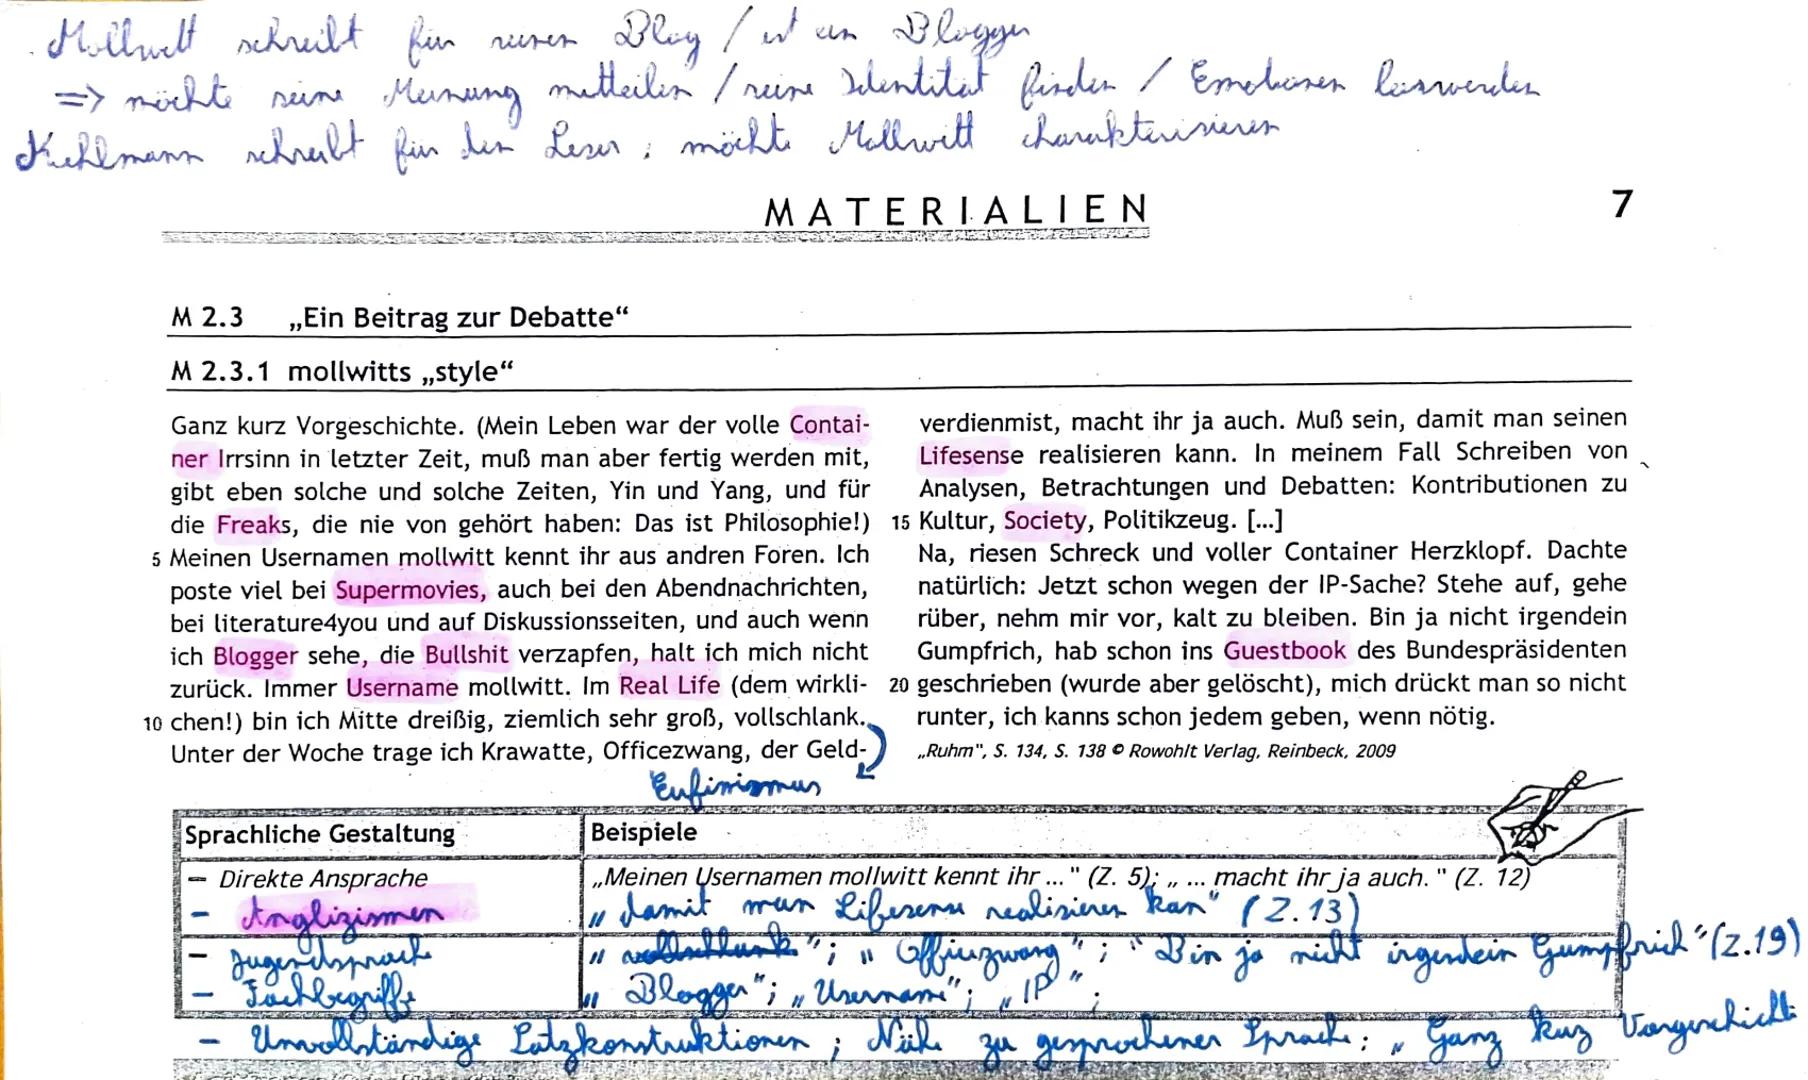 Mollwitt schreibt für seinen Blog / ist ein Blogger
=> möchte seine Meinung mitteilen / seine Identität finden / Emotionen loswerden
Kehlmann schreibt für den Leser; möchte Mollwitt charakterisieren
MATERIALIEN 7
M 2.3 „Ein Beitrag zur Debatte“
M 2.3.1 mollwitts „style“
Ganz kurz Vorgeschichte. (Mein Leben war der volle Contai-
ner Irrsinn in letzter Zeit, muß man aber fertig werden mit,
gibt eben solche und solche Zeiten, Yin und Yang, und für
die Freaks, die nie von gehört haben: Das ist Philosophie!)
5 Meinen Usernamen mollwitt kennt ihr aus andren Foren. Ich
poste viel bei Supermovies, auch bei den Abendnachrichten,
bei literature4you und auf Diskussionsseiten, und auch wenn
ich Blogger sehe, die Bullshit verzapfen, halt ich mich nicht
zurück. Immer Username mollwitt. Im Real Life (dem wirkli-
10 chen!) bin ich Mitte dreißig, ziemlich sehr groß, vollschlank.
Unter der Woche trage ich Krawatte, Officezwang, der Geld-
verdienmist, macht ihr ja auch. Muß sein, damit man seinen
Lifesense realisieren kann. In meinem Fall Schreiben von
Analysen, Betrachtungen und Debatten: Kontributionen zu
15 Kultur, Society, Politikzeug. [...]
Na, riesen Schreck und voller Container Herzklopf. Dachte
natürlich: Jetzt schon wegen der IP-Sache? Stehe auf, gehe
rüber, nehm mir vor, kalt zu bleiben. Bin ja nicht irgendein
Gumpfrich, hab schon ins Guestbook des Bundespräsidenten
20 geschrieben (wurde aber gelöscht), mich drückt man so nicht
runter, ich kanns schon jedem geben, wenn nötig.
„Ruhm", S. 134, S. 138 © Rowohlt Verlag, Reinbeck, 2009
Eufimismus
Sprachliche Gestaltung Beispiele
– Direkte Ansprache „Meinen Usernamen mollwitt kennt ihr ..." (Z. 5); „ ... macht ihr ja auch." (Z. 12)
– Anglizismen „damit man Lifesense realisieren kan" (Z.13)
– Jugendsprache „vollschlank"; „Officezwang"; "Bin ja nicht irgendein Gumpfrich" (Z.19)
– Fachbegriffe „Blogger"; „Username"; „IP";
– Unvollständige Satzkonstruktionen; Nähe zu gesprochener Sprache: „Ganz kuz Vorgeschicht